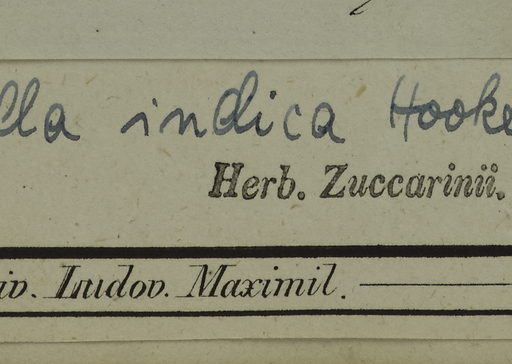 lla indica Hooke
Herb. Zuccarinii.
iv. Ludov. Maximil.